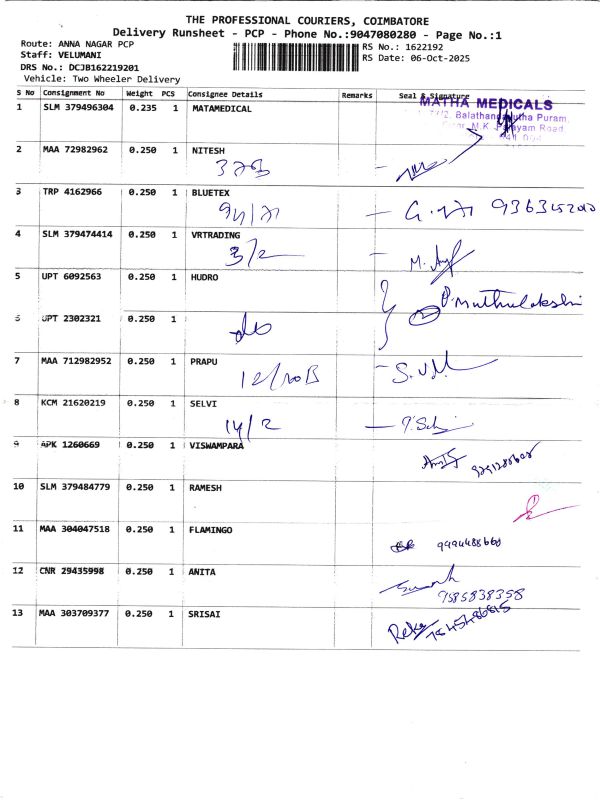 THE PROFESSIONAL COURIERS, COIMBATORE
Delivery Runsheet - PCP - Phone No.:9047080280 - Page No.:1
Route: ANNA NAGAR PCP
RS No.: 1622192
Staff: VELUMANI
RS Date: 06-Oct-2025
DRS No.: DCJB162219201
Vehicle: Two Wheeler Delivery
S No Consignment No Weight PCS Consignee Details Remarks Seal & Signature
1 SLM 379496304 0.235 1 MATAMEDICAL
MATHA MEDICALS
Balathandayutha Puram,
N.K. Palayam Road
2 MAA 72982962 0.250 1 NITESH
3 TRP 4162966 0.250 1 BLUETEX
4 SLM 379474414 0.250 1 VRTRADING
3/2
5 UPT 6092563 0.250 1 HUDRO
P.Muthulakshmi
6 UPT 2302321 0.250 1
do
7 MAA 712982952 0.250 1 PRAPU
12/20B S.V.M
8 KCM 21620219 0.250 1 SELVI
14/2
9 APK 1260669 0.250 1 VISWAMPARA
10 SLM 379484779 0.250 1 RAMESH
11 MAA 304047518 0.250 1 FLAMINGO
12 CNR 29435998 0.250 1 ANITA
9585838358
13 MAA 303709377 0.250 1 SRISAI
Reka